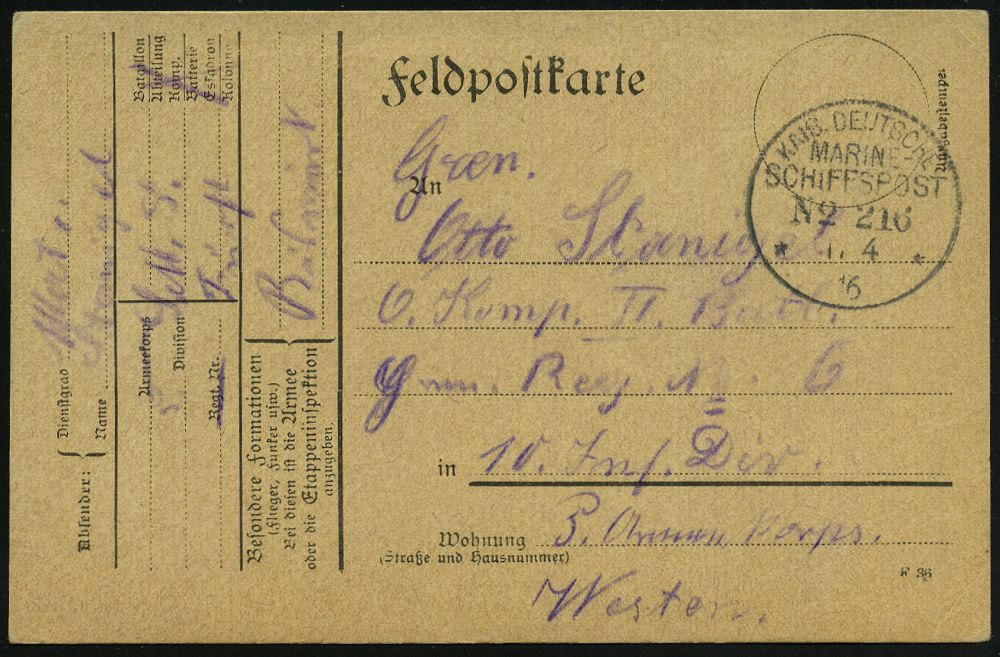 Feldpostkarte
Gren.
An
Otto
6. Komp. II. Batl.
Gren. Reg. Nr. 6
in 10. Inf. Div.
Wohnung 5. Armee Korps.
(Straße und Hausnummer)
Westen.
F 36
KAIS. DEUTSCHE
MARINE-
SCHIFFSPOST
No 216
* 1. 4 *
16
Absender:
Dienstgrad
Name
Bataillon
Abteilung
Komp.
Batterie
Eskadron
Kolonne
Armeekorps
Division
Regt. Nr.
Besondere Formationen
(Flieger, Funker usw.)
Bei diesen ist die Armee
oder die Etappeninspektion
anzugeben.